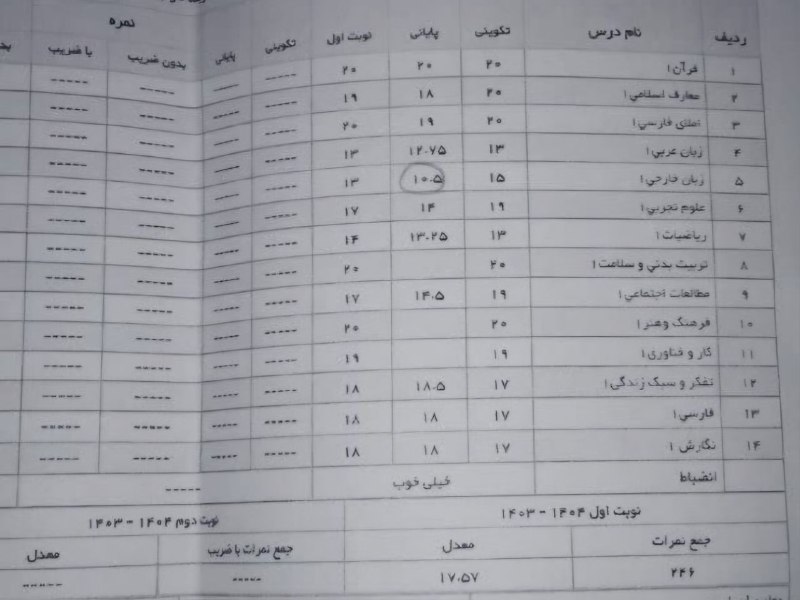 نمره
ردیف نام درس تکوینی پایانی نوبت اول تکوینی پایانی بدون ضریب با ضریب
۱ قرآن۱ ۲۰ ۲۰ ۲۰ ----- ----- ----- -----
۲ معارف اسلامي۱ ۲۰ ۱۸ ۱۹ ----- ----- ----- -----
۳ املای فارسي۱ ۲۰ ۱۹ ۲۰ ----- ----- ----- -----
۴ زبان عربي۱ ۱۳ ۱۲.۷۵ ۱۳ ----- ----- ----- -----
۵ زبان خارجي۱ ۱۵ ۱۰.۵ ۱۳ ----- ----- ----- -----
۶ علوم تجربي۱ ۱۹ ۱۴ ۱۷ ----- ----- ----- -----
۷ رياضيات۱ ۱۳ ۱۳.۲۵ ۱۴ ----- ----- ----- -----
۸ تربيت بدني و سلامت۱ ۲۰ ۲۰ ----- ----- ----- -----
۹ مطالعات اجتماعي۱ ۱۹ ۱۴.۵ ۱۷ ----- ----- ----- -----
۱۰ فرهنگ وهنر۱ ۲۰ ۲۰ ----- ----- ----- -----
۱۱ کار و فناوری۱ ۱۹ ۱۹ ----- ----- ----- -----
۱۲ تفکر و سبک زندگي۱ ۱۷ ۱۸.۵ ۱۸ ----- ----- ----- -----
۱۳ فارسي۱ ۱۷ ۱۸ ۱۸ ----- ----- ----- -----
۱۴ نگارش ۱ ۱۷ ۱۸ ۱۸ ----- ----- ----- -----
انضباط خیلی خوب -----
نوبت اول ۱۴۰۴ - ۱۴۰۳ نوبت دوم ۱۴۰۴ - ۱۴۰۳
جمع نمرات معدل جمع نمرات با ضریب معدل
۲۴۶ ۱۷.۵۷ ----- -----